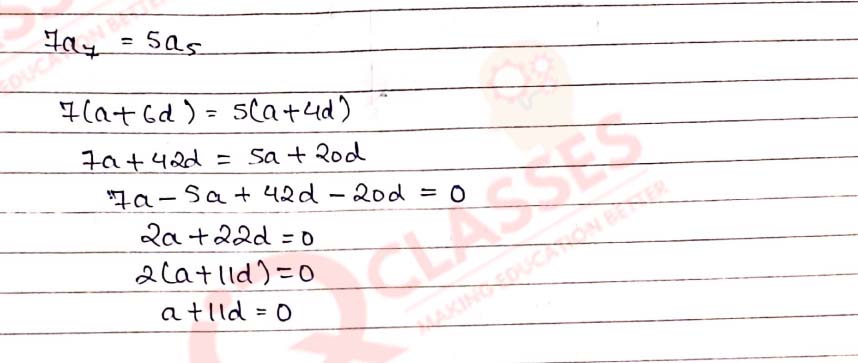 7a₇ = 5a₅
7(a+6d) = 5(a+4d)
7a+42d = 5a+20d
7a-5a+42d-20d = 0
2a+22d=0
2(a+11d)=0
a+11d=0
Q CLASSES
MAKING EDUCATION BETTER